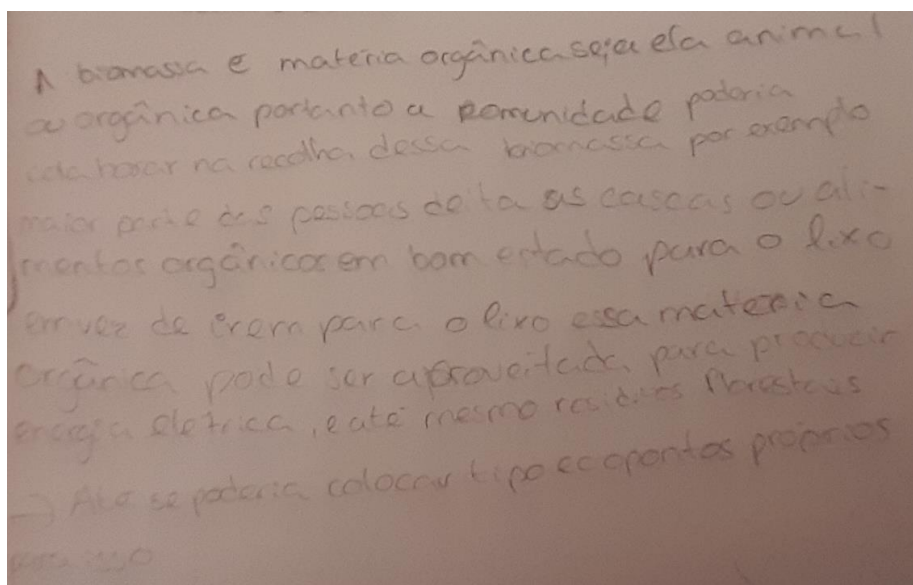 A biomassa e matéria orgânica seja ela animal
ou orgânica portanto a comunidade poderia
colaborar na recolha dessa biomassa por exemplo
maior parte das pessoas deita as cascas ou ali-
mentos orgânicos em bom estado para o lixo
em vez de irem para o lixo essa materia
orgânica pode ser aproveitada para producir
energia eletrica, e até mesmo residuos florestais
→ Ate se poderia colocar tipo ecopontos próprios
para isso